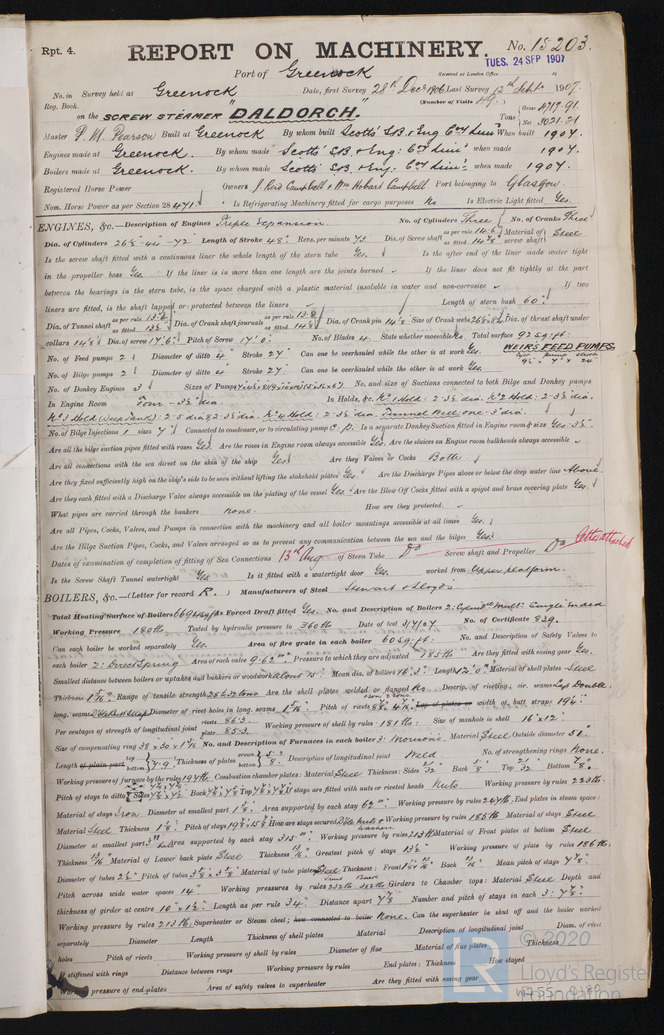 Rpt. 4.
REPORT ON MACHINERY.
No. 15203.
TUES. 24 SEP 1907
Port of Greenock
Received at London Office
No. in Survey held at Greenock Date, first Survey 28th Decr 1906 Last Survey 12th Septr 1907.
Reg. Book. (Number of Visits 49)
on the SCREW STEAMER "DALDORCH." Tons Gross 4717.91 Net 3021.21
Master P. M. Pearson Built at Greenock By whom built Scotts' S.B. & Eng Coy Lim When built 1907.
Engines made at Greenock. By whom made Scotts' S.B. & Eng: Coy Limd when made 1907.
Boilers made at Greenock. By whom made Scotts' S.B. & Eng. Coy Limd. when made 1907.
Registered Horse Power Owners J. Reid Campbell & Wm Hobart Campbell Port belonging to Glasgow.
Nom. Horse Power as per Section 28 471. Is Refrigerating Machinery fitted for cargo purposes No Is Electric Light fitted Yes.
ENGINES, &c.—Description of Engines Triple Expansion No. of Cylinders Three No. of Cranks Three
Dia. of Cylinders 26½-44-72 Length of Stroke 48" Revs. per minute 73 Dia. of Screw shaft as per rule 14.6 as fitted 14⅞ Material of screw shaft Steel
Is the screw shaft fitted with a continuous liner the whole length of the stern tube Yes. Is the after end of the liner made water tight
in the propeller boss Yes. If the liner is in more than one length are the joints burned If the liner does not fit tightly at the part
between the bearings in the stern tube, is the space charged with a plastic material insoluble in water and non-corrosive If two
liners are fitted, is the shaft lapped or protected between the liners Length of stern bush 60"
Dia. of Tunnel shaft as per rule as fitted Dia. of Crank shaft journals as per rule as fitted Dia. of Crank pin 14⅞ Size of Crank webs Dia. of thrust shaft under
collars 14⅞ Dia. of screw 17'.6" Pitch of Screw 17'.0" No. of Blades 4 State whether moveable No Total surface 92 sq. ft.
WEIR'S FEED PUMPS.
No. of Feed pumps 2 Diameter of ditto 4" Stroke 27" Can one be overhauled while the other is at work Yes.
No. of Bilge pumps 2 Diameter of ditto 4" Stroke 27" Can one be overhauled while the other is at work Yes.
No. of Donkey Engines 3 Sizes of Pumps No. and size of Suctions connected to both Bilge and Donkey pumps
In Engine Room Four - 3½" dia. In Holds, &c. No 1 Hold: 2-3½ dia. No 2 Hold: 2-3½ dia.
No 3 Hold (Deep Tank): 2-5 dia & 2-3½ dia. No 4 Hold: 2-3½ dia Tunnel Well one-3" dia.
No. of Bilge Injections 1 sizes 7" Connected to condenser, or to circulating pump C.P. Is a separate Donkey Suction fitted in Engine room & size Yes-3½".
Are all the bilge suction pipes fitted with roses Yes. Are the roses in Engine room always accessible Yes. Are the sluices on Engine room bulkheads always accessible
Are all connections with the sea direct on the skin of the ship Yes. Are they Valves or Cocks Both.
Are they fixed sufficiently high on the ship's side to be seen without lifting the stokehold plates Yes. Are the Discharge Pipes above or below the deep water line Above
Are they each fitted with a Discharge Valve always accessible on the plating of the vessel Yes. Are the Blow Off Cocks fitted with a spigot and brass covering plate Yes.
What pipes are carried through the bunkers None. How are they protected.
Are all Pipes, Cocks, Valves, and Pumps in connection with the machinery and all boiler mountings accessible at all times Yes.
Are the Bilge Suction Pipes, Cocks, and Valves arranged so as to prevent any communication between the sea and the bilges Yes.
Letter attached
Dates of examination of completion of fitting of Sea Connections 13th Aug of Stern Tube Do Screw shaft and Propeller Do
Is the Screw Shaft Tunnel watertight Yes Is it fitted with a watertight door Yes. worked from Upper platform.
BOILERS, &c.—(Letter for record R.) Manufacturers of Steel Stewart & Lloyd's
Total Heating Surface of Boilers Is Forced Draft fitted Yes. No. and Description of Boilers 2: Cylind'l Mult: Single Ended
Working Pressure 180 lb Tested by hydraulic pressure to 360 lb Date of test 3/7/07 No. of Certificate 839.
Can each boiler be worked separately Yes. Area of fire grate in each boiler 60 sq. ft. No. and Description of Safety Valves to
each boiler 2: Direct Spring Area of each valve 9.62" Pressure to which they are adjusted 185 lb Are they fitted with easing gear Yes.
Smallest distance between boilers or uptakes and bunkers or woodwork about 15" Mean dia. of boilers 16'.3" Length 12'.0" Material of shell plates Steel
Thickness Range of tensile strength 28 & 32 tons Are the shell plates welded or flanged No Descrip. of riveting: cir. seams Lap Double.
long. seams Diameter of rivet holes in long. seams Pitch of rivets Lap of plates or width of butt straps 19¾"
Per centages of strength of longitudinal joint rivets 86.3 plate 85.3 Working pressure of shell by rules 181 lb: Size of manhole in shell 16" x 12"
Size of compensating ring No. and Description of Furnaces in each boiler 3: Morison's. Material Steel. Outside diameter
Length of plain part top bottom Thickness of plates crown bottom Description of longitudinal joint Weld. No. of strengthening rings None.
Working pressure of furnace by the rules 194 lb Combustion chamber plates: Material Steel Thickness: Sides 21/32 Back 5/8 Top 21/32 Bottom
Pitch of stays to ditto: Sides Back Top If stays are fitted with nuts or riveted heads Nuts Working pressure by rules 223 lb.
Material of stays Iron Diameter at smallest part Area supported by each stay 62" Working pressure by rules 247 lb End plates in steam space:
Material Steel Thickness 1⅛" Pitch of stays How are stays secured Working pressure by rules 185 lb Material of stays Steel
Diameter at smallest part Area supported by each stay 315" Working pressure by rules 213 lb Material of Front plates at bottom Steel
Thickness Material of Lower back plate Steel Thickness Greatest pitch of stays 13½" Working pressure of plate by rules 186 lb.
Diameter of tubes 2½" Pitch of tubes Material of tube plates Steel Thickness: Front Back Mean pitch of stays
Pitch across wide water spaces 14" Working pressures by rules Girders to Chamber tops: Material Steel Depth and
thickness of girder at centre Length as per rule 34" Distance apart Number and pitch of stays in each
Working pressure by rules 213 lb: Superheater or Steam chest; how connected to boiler None. Can the superheater be shut off and the boiler worked
separately Diameter Length Thickness of shell plates Material Description of longitudinal joint Diam. of rivet
holes Pitch of rivets Working pressure of shell by rules Diameter of flue Material of flue plates Thickness
If stiffened with rings Distance between rings Working pressure by rules End plates: Thickness How stayed
Working pressure of end plates Area of safety valves to superheater Are they fitted with easing gear
© 2020
Lloyd's Register
Foundation